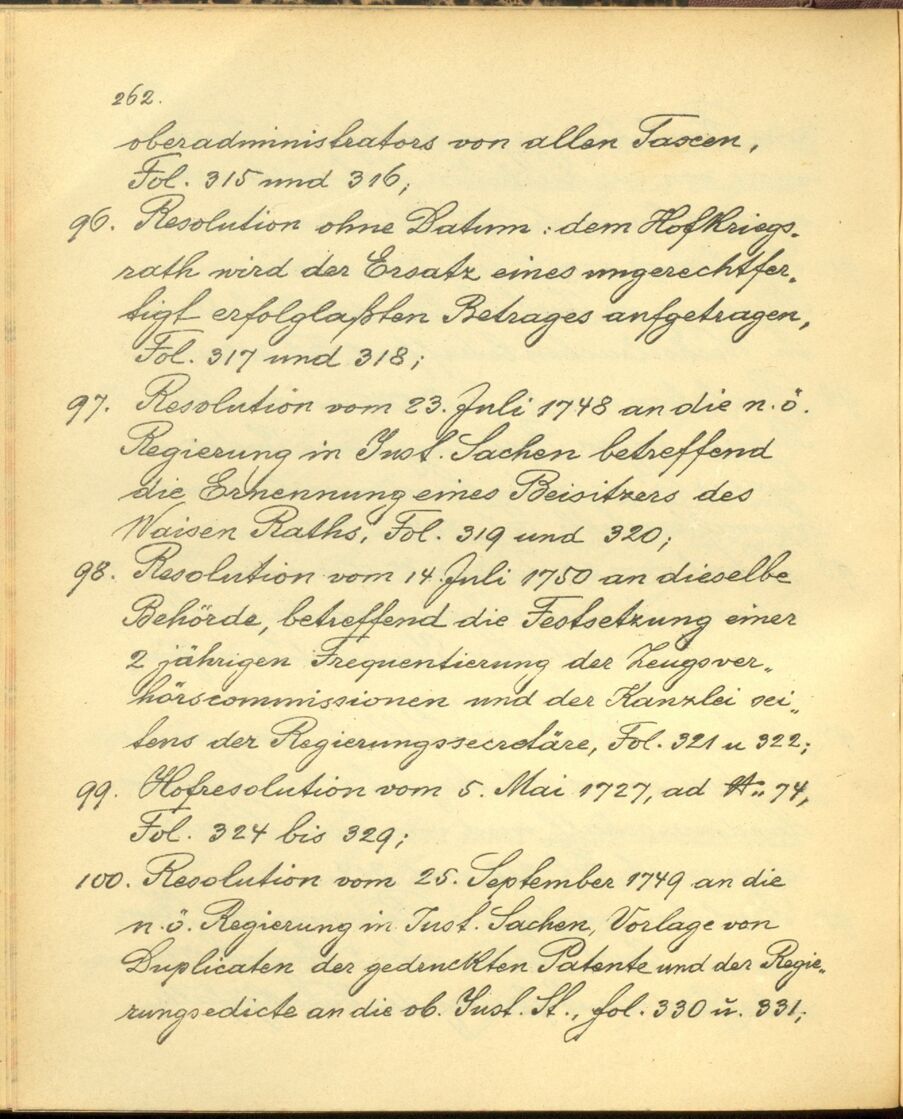 262.
oberadministrators von allen Taxen,
Fol. 315 und 316;
96. Resolution ohne Datum: dem Hofkriegs-
rath wird der Ersatz eines ungerechtfer-
tigt erfolglaßten Betrages aufgetragen,
Fol. 317 und 318;
97. Resolution vom 23. Juli 1748 an die n. ö.
Regierung in Just. Sachen betreffend
die Ernennung eines Beisitzers des
Waisen Raths, Fol. 319 und 320;
98. Resolution vom 14. Juli 1750 an dieselbe
Behörde, betreffend die Festsetzung einer
2 jährigen Frequentierung der Zeugsver-
hörscommissionen und der Kanzlei sei-
tens der Regierungssecretäre, Fol. 321 u 322;
99. Hofresolution vom 5. Mai 1727, ad 74,
Fol. 324 bis 329;
100. Resolution vom 25. September 1749 an die
n. ö. Regierung in Just. Sachen, Vorlage von
Duplicaten der gedruckten Patente und der Regie-
rungsedicte an die ob. Just. St., fol. 330 u. 331;